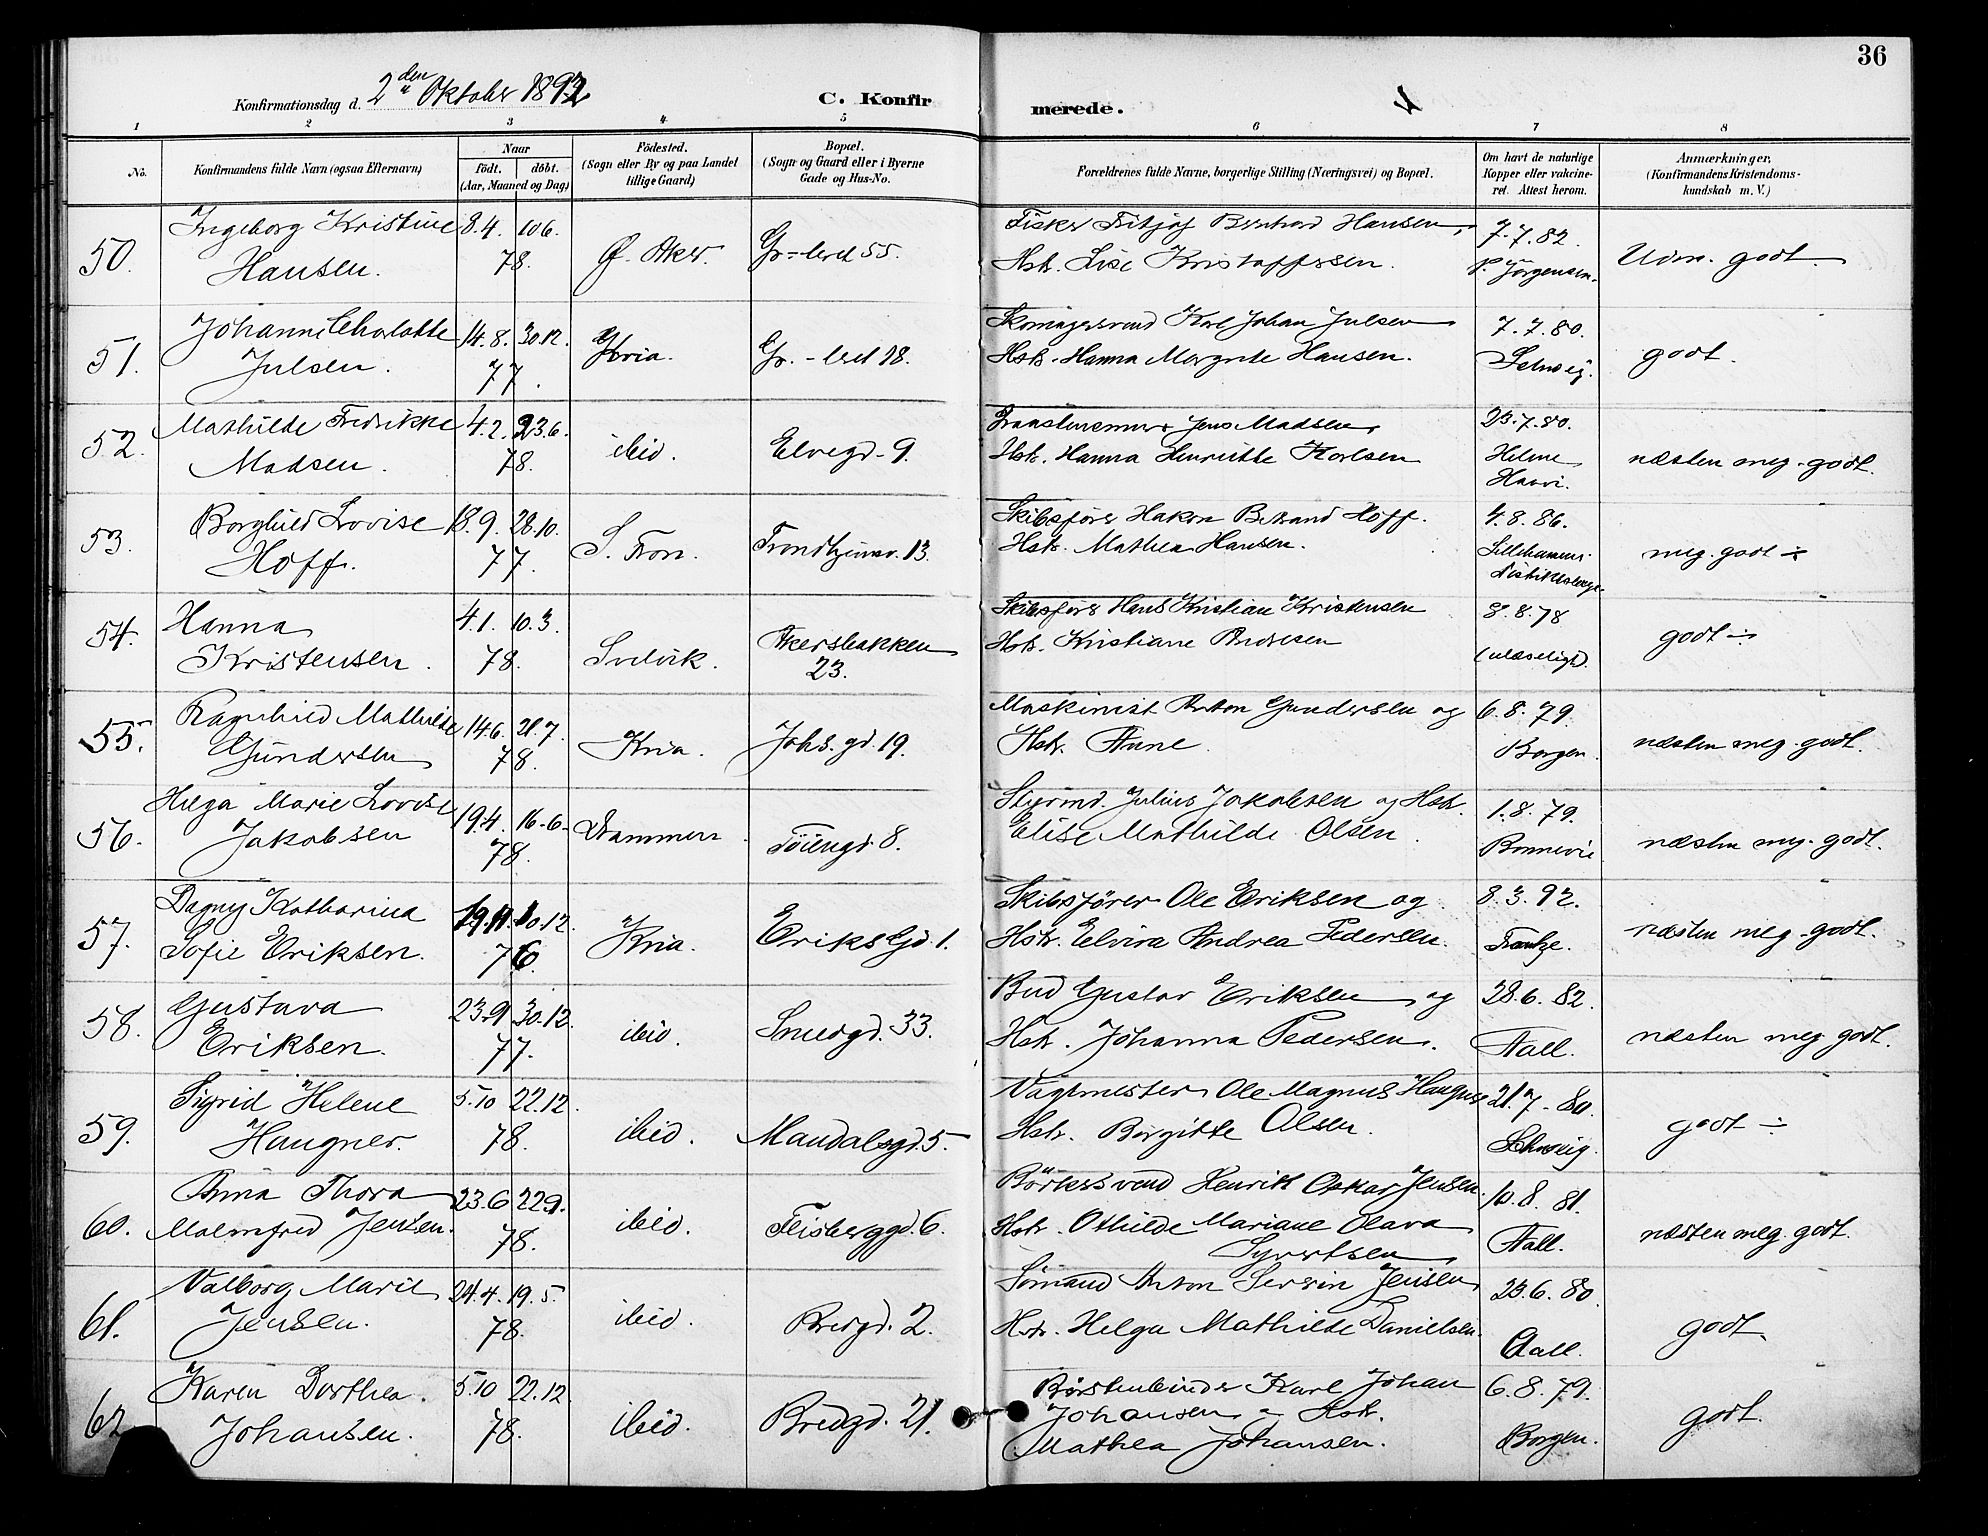 36
Konfirmationsdag d. 2den Oktober 1892
C. Konfirmerede.
1 2 3 4 5 6 7 8
No.
Konfirmandens fulde Navn (ogsaa Efternavn)
Naar
födt. döbt.
(Aar, Maaned og Dag)
Födested.
(Sogn eller By og paa Landet
tillige Gaard)
Bopæl.
(Sogn og Gaard eller i Byerne
Gade og Hus-No.
Forældrenes fulde Navne, borgerlige Stilling (Næringsvei) og Bopæl.
Om havt de naturlige
Kopper eller vakcine-
ret. Attest herom.
Anmærkninger.
(Konfirmandens Kristendoms-
kundskab m. V.)
50. Ingeborg Kristine 8.4. 10.6. Ø. Aker. Gr-leret 55. Fisker Fritjof Bernhard Hansen, 7.7.82. Udm. godt.
Hansen. 78. Hstr. Lise Kristoffersen. P. Jørgensen.
51. Johanne Charlotte 14.8. 30.12. Kria. Gr.-leret 18. Skomagersvend Karl Johan Julsen 7.7.80. godt.
Julsen. 77. Hstr. Hanna Margrete Hansen. Schweig.
52. Mathilde Fredrikke 4.2. 23.6. ibid. Elvegd. 9. Jens Madsen, 23.7.80. næsten meg. godt.
Madsen. 78. Hstr. Hanna Henriette Karlsen Helene
53. Borghild Lovise 18.9. 28.10. S. Fron. Trondhjemsv. 13. Skibsfører Hakon Hoff. 4.8.86. meg. godt ÷
Hoff. 77. Hstr. Mathea Hansen. Lillehammer
54. Hanna 4.1. 10.3. Svelvik. Akersbakken Skibsfører Hans Kristian Kristensen 8.8.78 godt ÷
Kristensen. 78. 23. Hstr. Kristiane Andresen (ulæseligt).
55. Ragnhild Mathilde 14.6. 21.7. Kria. Johs. gd. 19. Maskinist Anton Gundersen og 6.8.79. næsten meg. godt.
Gundersen 78. Hstr. Anne. Borgen
56. Helga Marie Lovise 19.4. 16.6. Drammen Töiengd. 8. Styrmd. Julius Jakobsen og Hstr. 1.8.79. næsten meg. godt.
Jakobsen 78. Elise Mathilde Olsen. Bonnevie
57. Dagny Katharina 19.11. 10.12. Kria. Eriks Gd. 1. Skibsfører Ole Eriksen og 8.3.92. næsten meg. godt.
Sofie Eriksen. 76. Hstr. Elvira Andrea Pedersen.
58. Gustava 23.9. 30.12. ibid. Smedgd. 33. Bud Gustav Eriksen og 28.6.82. næsten meg godt.
Eriksen. 77. Hstr. Johanna Pedersen. Aall.
59. Sigrid Helene 5.10 22.12. ibid. Mandalsgd. 5. Vagtmester Ole Magnus Haugner 21.7.80. godt ÷
Haugner. 78. Hstr. Birgitte Olsen. Schweig.
60. Anna Thora 23.6 22.9. ibid. Fleisberggd. 6. Henrik Oskar Jensen. 10.8.81. næsten meg. godt.
Malmfred Jensen. 78. Hstr. Othilde Mariane Olava Aall.
Syvertsen
61. Valborg Marie 24.4. 19.5. ibid. Bredgd. 2. Sømand Anton Jensen, 23.6.80. godt.
Jensen. 78. Hstr. Helga Mathilde Danielsen. Aall.
62 Karen Dorthea. 5.10 22.12. ibid. Bredgd. 21. Børstenbinder Karl Johan 6.8.79. godt.
Johansen. 78. Johansen og Hstr.
Mathea Johansen. Borgen.